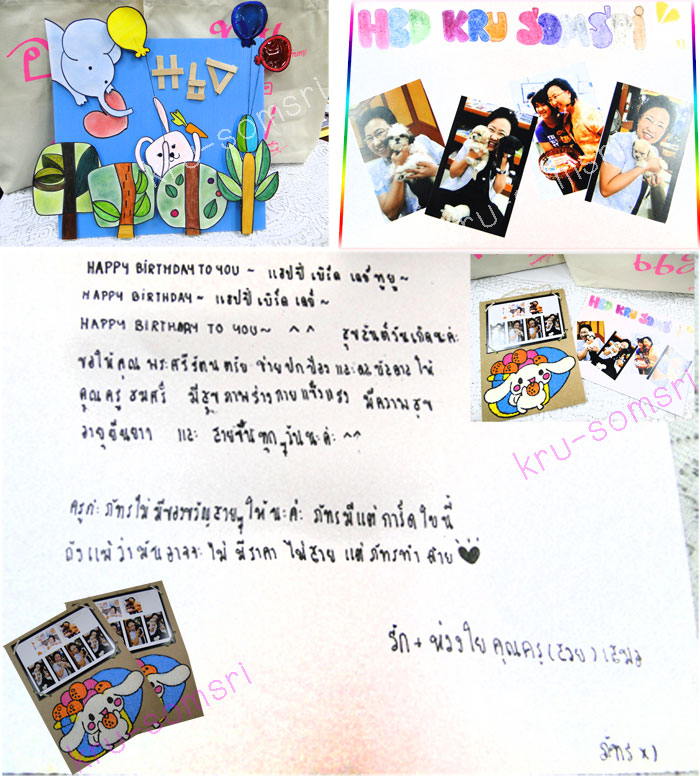 HBD
HBD KRU SOMSRI
kru-somsri
HAPPY BIRTHDAY TO YOU ~ แฮปปี้ เบิร์ด เดย์ ทูยู ~
HAPPY BIRTHDAY ~ แฮปปี้ เบิร์ด เดย์ ~
HAPPY BIRTHDAY TO YOU ~ ^^ สุขสันต์วันเกิดนะค่ะ
ขอให้คุณ พระศรีรัตนตรัย ช่วยปกป้อง และดลบันดาล ให้
คุณครู สมศรี มีสุขภาพร่างกายแข็งแรง มีความสุข
อายุยืนยาว และ สวยขึ้นทุกๆวันนะค่ะ ^^
ครูค่ะ ภัทรไม่มีของขวัญสวยๆ ให้นะค่ะ ภัทรมีแต่การ์ดใบนี้
ถึงแม้ว่ามันอาจจะไม่ มีราคา ไม่สวย แต่ภัทรทำ สวย
รัก + ห่วงใย คุณครู (สวย) เสมอ
ภัทร x)
HBD KRU SOMS
kru-somsri
kru-somsri